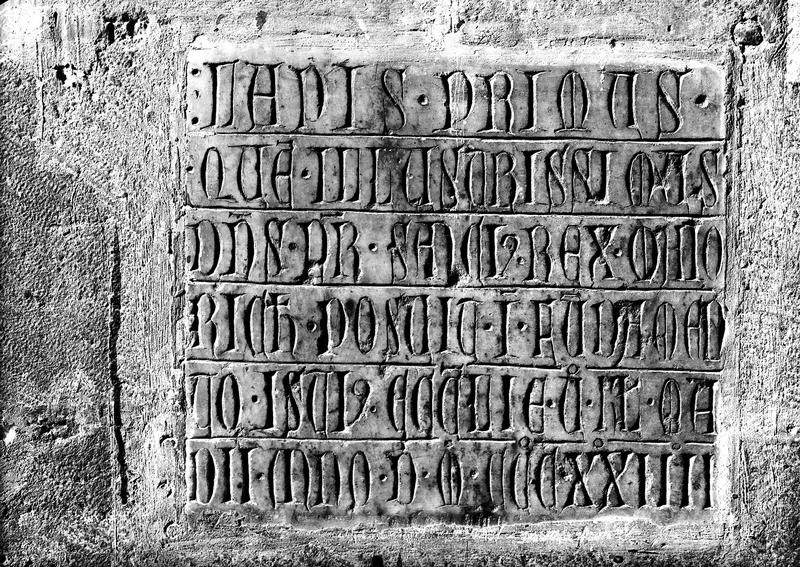 LAPIS · PRIMUS ·
QUĒ · ILLUSTRISSIMUS
DNS · NR · SANCIꝰ · REX · MAIO
RICAꝜ · POSUIT · Ī FŪDAMEN
TO · ISTIꝰ · ECCLIE · V · KL · MA
DII · ANNO · D · M · CCCXXIIII